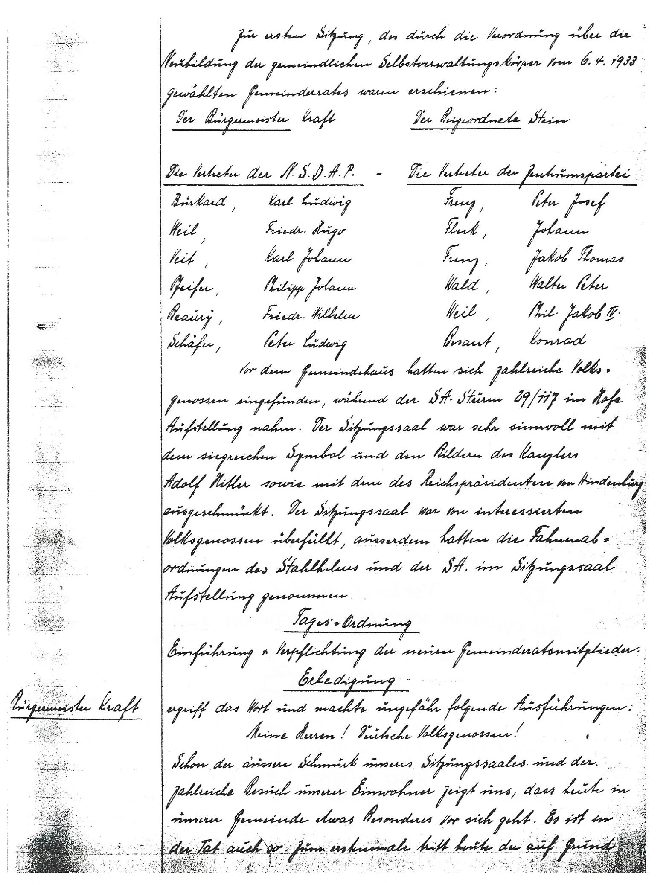 Zur ersten Sitzung, des durch die Verordnung über die
Neubildung der gemeindlichen Selbstverwaltungskörper vom 6.4.1933
gewählten Gemeinderates waren erschienen:
Der Bürgermeister Kraft Der Beigeordnete Stein
Die Vertreter der N.S.D.A.P. - Die Vertreter der Zentrumspartei
Burkard, Karl Ludwig Freng, Peter Josef
Weil, Friedr. Hugo Fleck, Johann
Veit, Karl Johann Freng, Jakob Thomas
Pfeifer, Philipp Johann Wald, Walter Peter
Beaury, Friedr. Wilhelm Weil, Phil. Jakob IV.
Schäfer, Peter Ludwig Besant, Konrad
Vor dem Gemeindehaus hatten sich zahlreiche Volks-
genossen eingefunden, während der SA. Sturm 29/117 im Hofe
Aufstellung nahm. Der Sitzungssaal war sehr sinnvoll mit
dem siegreichen Symbol und den Bildern des Kanzlers
Adolf Hitler sowie mit dem des Reichspräsidenten von Hindenburg
ausgeschmückt. Der Sitzungssaal war von interessierten
Volksgenossen überfüllt, ausserdem hatten die Fahnenab-
ordnungen des Stahlhelms und der SA. im Sitzungssaal
Aufstellung genommen.
Tages-Ordnung
Einführung u. Verpflichtung der neuen Gemeinderatsmitglieder.
Erledigung
Bürgermeister Kraft ergriff das Wort und machte ungefähr folgende Ausführungen:
Meine Herren! Deutsche Volksgenossen!
Schon der äussere Schmuck unseres Sitzungssaales und der
zahlreiche Besuch unserer Einwohner zeigt uns, dass heute in
unserer Gemeinde etwas Besonderes vor sich geht. Es ist in
der Tat auch so. Zum erstenmale tritt heute der auf Grund